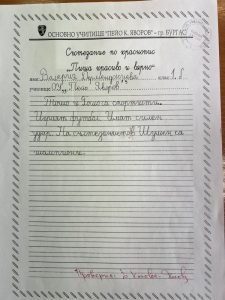 ОСНОВНО УЧИЛИЩЕ "ПЕЙО К. ЯВОРОВ" - гр. БУРГАС
Състезание по краснопис
„Пиша красиво и вярно“
име: Валерия клас: 1. б
училище: ОУ „Пейо Яворов“
Тишо и Рамса спортисти.
Играят футбол. Имат силен
удар. На състезанието в Шумен са
шампиони.
Проверил: